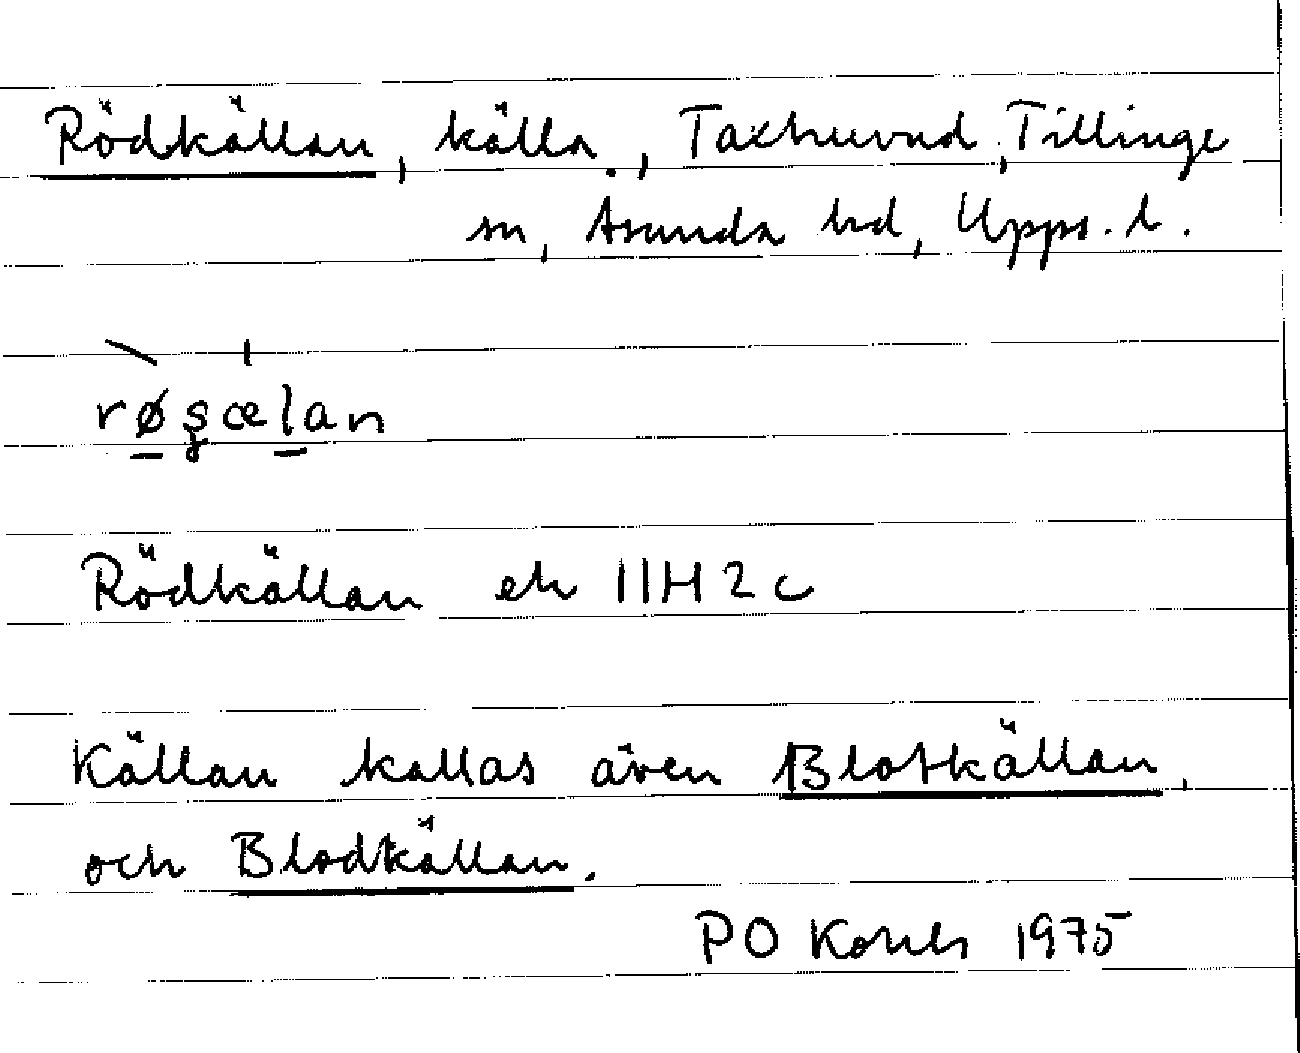 Rödkällan, källa, Taxhuvud, Tillinge
sn, Åsunda hd, Upps. l.
Rödkällan ek 11H2c
Källan kallas även Blotkällan,
och Blodkällan.
PO 1975